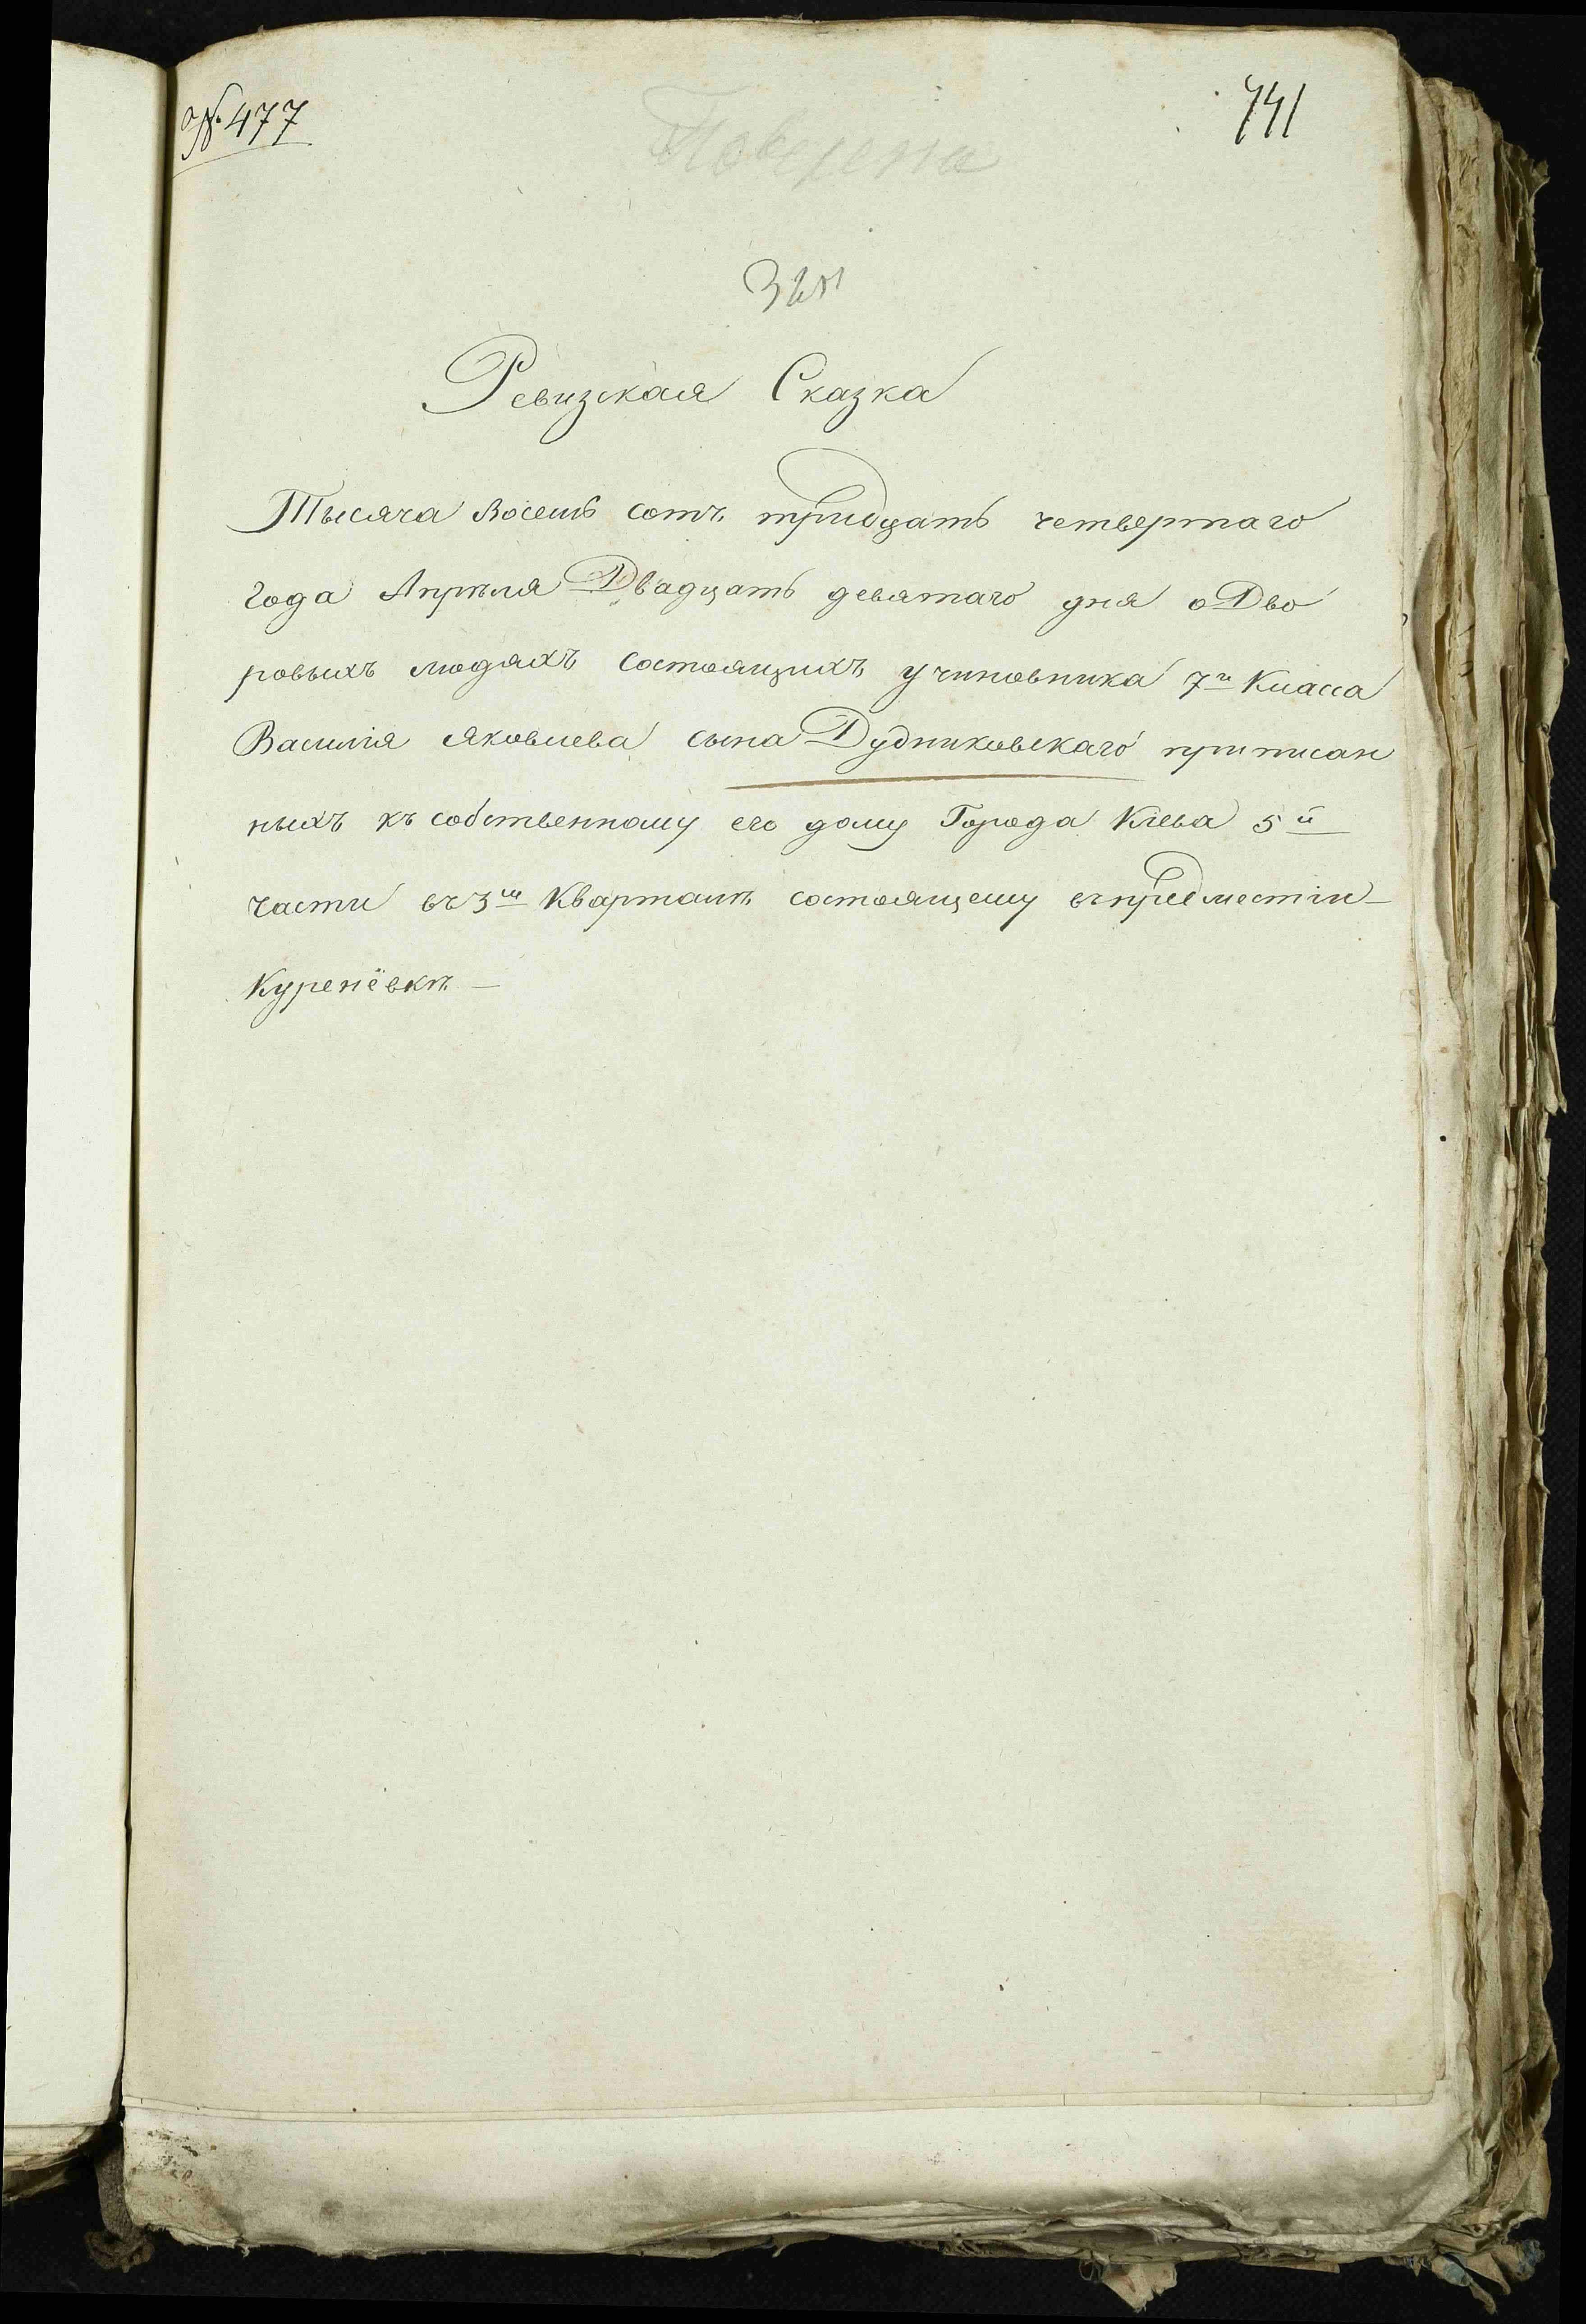 № 477
741
Ревизская Сказка
Тысяча восемь сотъ тридцать четвертаго
года Апрѣля Двадцать девятаго дня о Дво
ровыхъ людяхъ состоящихъ у чиновника 7го Класса
Василія Яковлева сына Дудниковскаго приписан
ныхъ къ собственному его дому Города Кіева 5й
части въ 3м Кварталѣ состоящему въ предместіи
Куренёвкѣ —